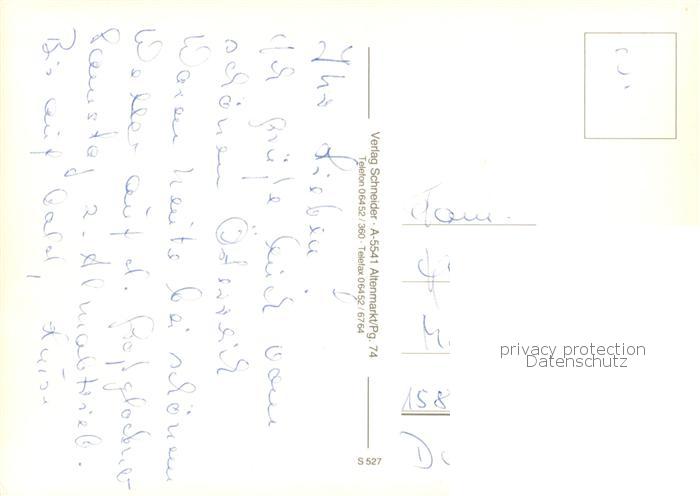 Ihr Lieben,
ich grüße Euch vom
schönen Österreich
Waren heute bei schönem
Wetter auf d. Großglockner
Samstag z. Almabtrieb.
Bis auf bald,
Verlag Schneider · A-5541 Altenmarkt/Pg. 74
Telefon 06452/360 · Telefax 06452/6764
S 527
Fam.
158
D
privacy protection
Datenschutz